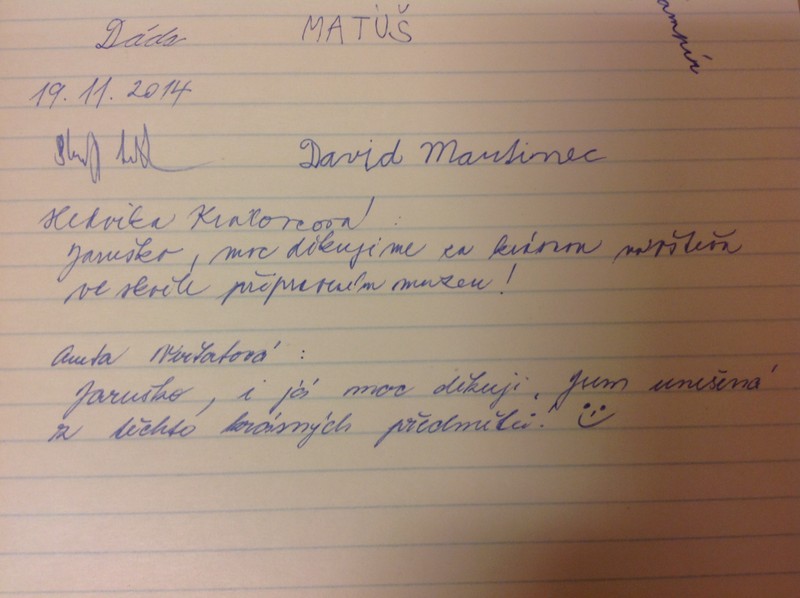 Dáda MATÚŠ
19. 11. 2014
David Martinec
Hedvika :
Jaruško, moc děkujeme za krásnou návštěvu
ve skvěle připraveném muzeu!
Aneta :
Jaruško, i já moc děkuji. Jsem unešená
z těchto krásných předmětů!